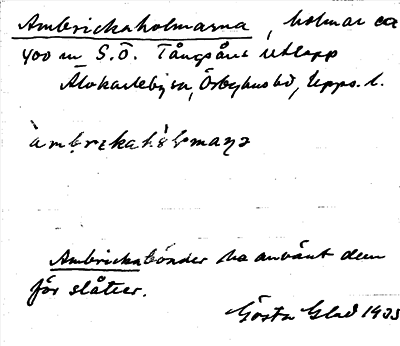 Ambrickaholmarna, holmar ca
400 m S.Ö. Tångsåns utlopp
Älvkarleby sn, Örbyhus hd, Upps. l.
Ambrickabönder ha använt dem
för slåtter.
Gösta Glad 1935